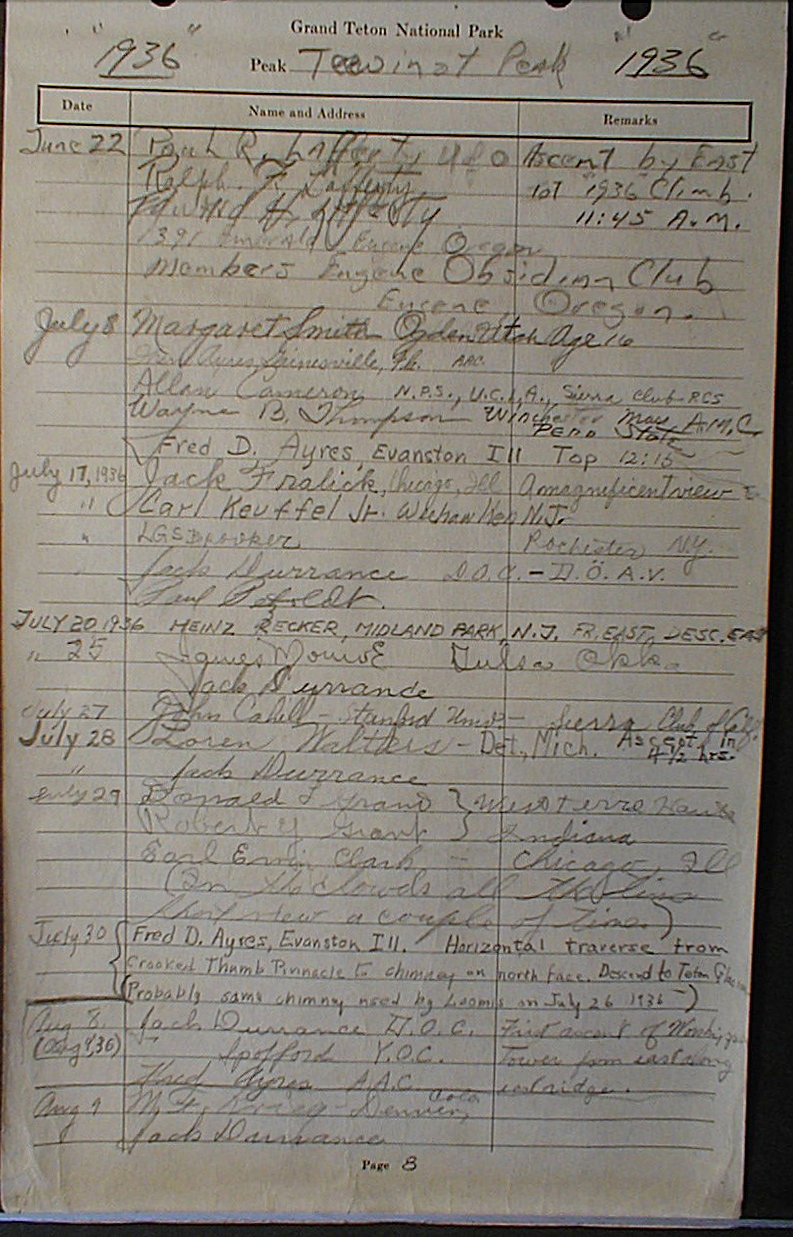 Grand Teton National Park
"1936" Peak Teewinot Peak "1936"
Date Name and Address Remarks
June 22 Paul R. Lafferty U of O Ascent by East
Ralph F. Lafferty 1st "1936" Climb.
Edward H. Lafferty 11:45 A.M.
1391 Emerald Eugene Oregon
Members Eugene Obsidian Club
Eugene, Oregon.
July 8 Margaret Smith Ogden Utah Age 16
Irene Ayres, Gainesville, Fla. AAC.
Allan Cameron, N.P.S., U.C.L.A., Sierra Club RCS
Wayne B. Thompson Winchester Mass A.M.C.
Penn State
Fred D. Ayres, Evanston Ill Top 12:15
July 17, 1936 Jack Fralick, Chicago, Ill A magnificent view
" Carl Keuffel Jr. Weehawken N.J.
" LGS Brooker Rochester N.Y.
" Jack Durrance D.O.C. - D.Ö.A.V.
Paul Petzoldt.
JULY 20 1936 HEINZ RECKER, MIDLAND PARK, N.J. FR. EAST, DESC. EAST
" 25 James Monroe Tulsa Okla.
Jack Durrance
July 27 John Cahill - Stanford Univ - Sierra Club of Calif.
July 28 Loren Walters - Det., Mich. Ascent in
4 1/2 hrs.
" Jack Durrance
July 29 Donald Grant } West Terre Haute
Robert Y Grant } Indiana
Earl Clark - Chicago, Ill
(In the clouds all the time
short view a couple of times)
July 30 { Fred D. Ayres, Evanston Ill. Horizontal traverse from
Crooked Thumb Pinnacle to chimney on north face. Descend to Teton Glacier
(Probably same chimney used by Loomis on July 26 1936)
Aug 8 Jack Durrance D.O.C. First ascent of
(Aug 8, 36) Spofford Y.O.C. Tower from east along
Fred Ayres A.A.C. east ridge.
Aug 9 Denver, Colo
Jack Durrance
Page 8